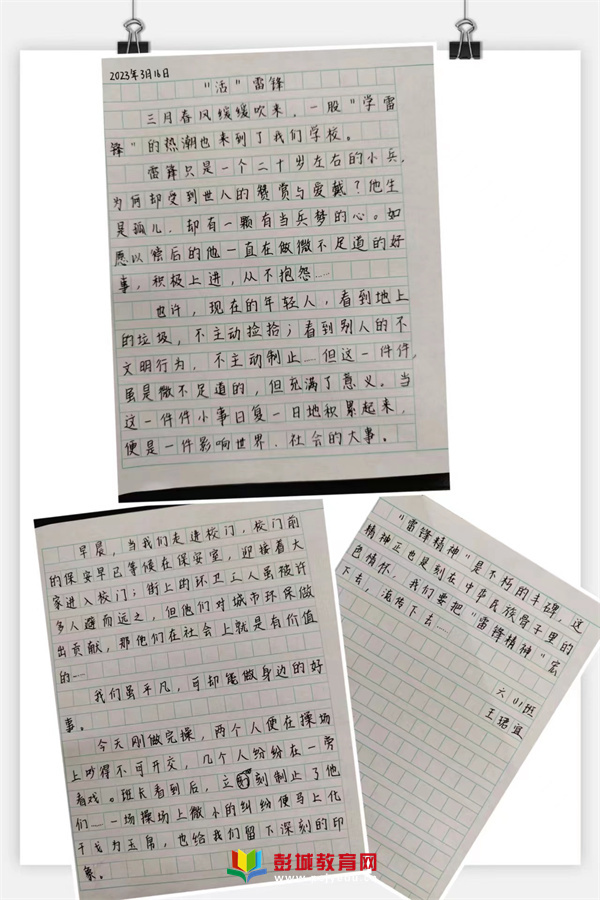 2023年3月16日
"活"雷锋
三月春风缓缓吹来，一股"学雷
锋"的热潮也来到了我们学校。
雷锋只是一个二十岁左右的小兵，
为何却受到世人的赞赏与爱戴？他生
是孤儿，却有一颗有当兵梦的心。如
愿以偿后的他一直在做微不足道的好
事，积极上进，从不抱怨……
也许，现在的年轻人，看到地上
的垃圾，不主动捡拾；看到别人的不
文明行为，不主动制止……但这一件件，
虽是微不足道的，但充满了意义。当
这一件件小事日复一日地积累起来，
便是一件影响世界、社会的大事。
早晨，当我们走进校门，校门前
的保安早已等候在保安室，迎接着大
家进入校门；街上的环卫工人虽被许
多人避而远之，但他们对城市环保做
出贡献，那他们在社会上就是有价值
的……
我们虽平凡，可却能做身边的好
事。
今天刚做完操，两个人便在操场
上吵得不可开交，几个人纷纷在一旁
看戏。班长看到后，立刻制止了他
们……一场操场上微小的纠纷便马上化
干戈为玉帛，也给我们留下深刻的印
象。
"雷锋精神"是不朽的丰碑，这
精神正也是刻在中华民族骨子里的
色情怀，我们要把"雷锋精神"宏
下去，流传下去……
六（1）班
王珺宜
彭城教育网